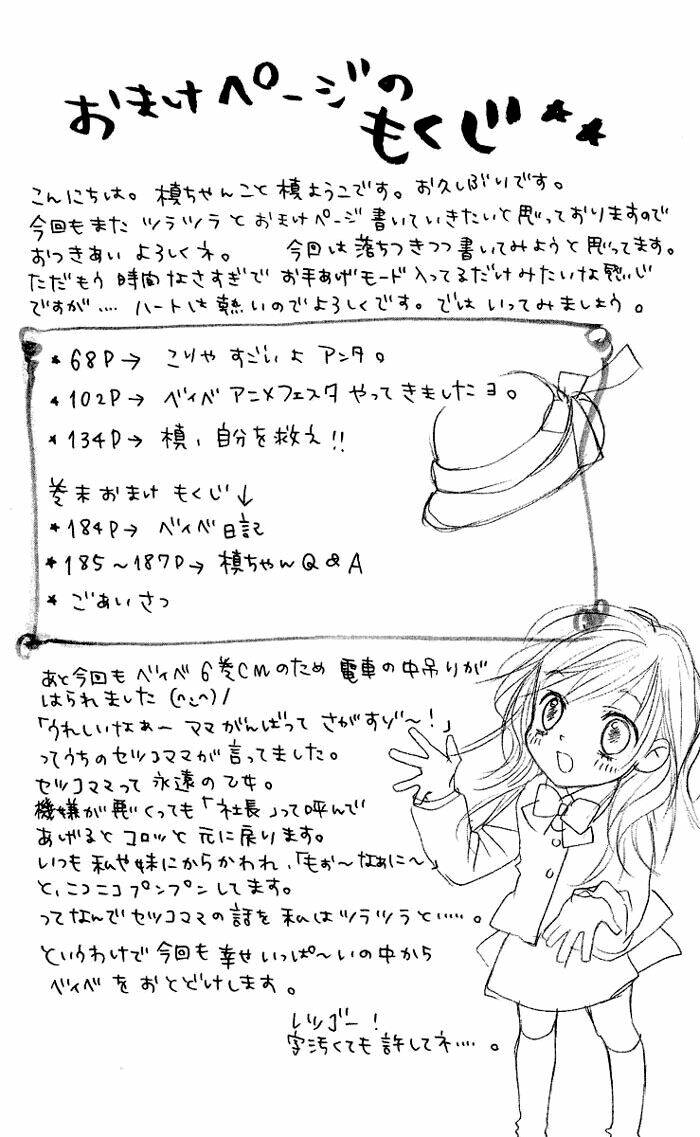 おまけページの
もくじ★★
こんにちは。槙ちゃんこと槙ようこです。お久しぶりです。
今回もまたツラツラとおまけページ書いていきたいと思っておりますので
おつきあいよろしくネ。 今回は落ちつきつつ書いてみようと思ってます。
ただもう時間なさすぎでお手あげモード入ってるだけみたいな感じ
ですが…. ハートは熱いのでよろしくです。ではいってみましょう。
★68P→ こりゃすごいよアンタ。
★102P→ ベイベアニメフェスタやってきましたヨ。
★134P→ 槙、自分を救え!!
巻末おまけもくじ↓
★184P→ ベイベ日記
★185〜187P→ 槙ちゃんQ&A
★ ごあいさつ
あと今回もベイベ6巻CMのため電車の中吊りが
はられました(∩_∩)/
「うれしいなぁーママがんばってさがすゾ〜!」
ってうちのセツコママが言ってました。
セツコママって永遠の乙女。
機嫌が悪くっても「社長」って呼んで
あげるとコロッと元に戻ります。
いつも私や妹にからかわれ、「もぉ〜なぁに〜」
と、ニコニコプンプンしてます。
ってなんでセツコママの話を私はツラツラと…..。
というわけで今回も幸せいっぱ〜いの中から
ベイベをおとどけします。
レッツゴー!
字汚くても許してネ….。